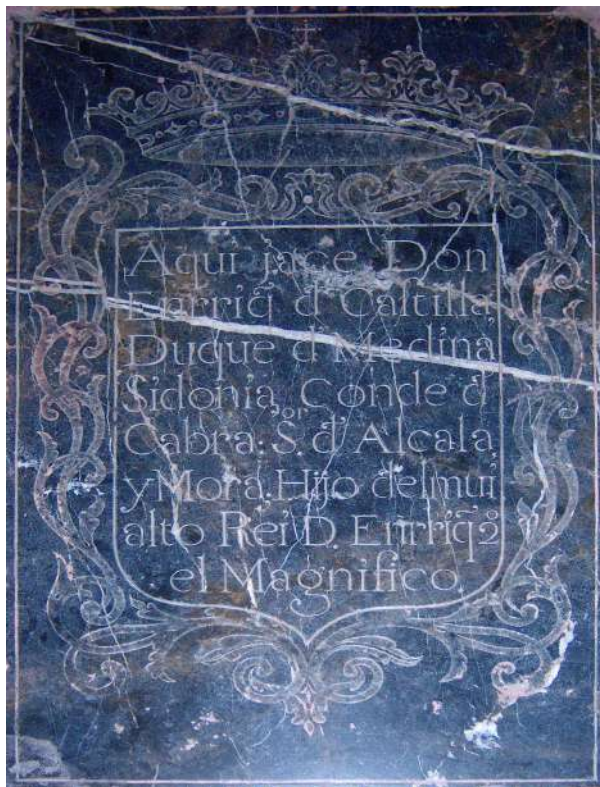 Aqui jace Don
Enrriq̃ d' Castilla,
Duque d' Medina
Sidonia, Conde d'
Cabra: S.ᵒʳ d' Alcala,
y Mora. Hijo del mui
alto Rei D. Enrriq̃ 2º
el Magnifico.